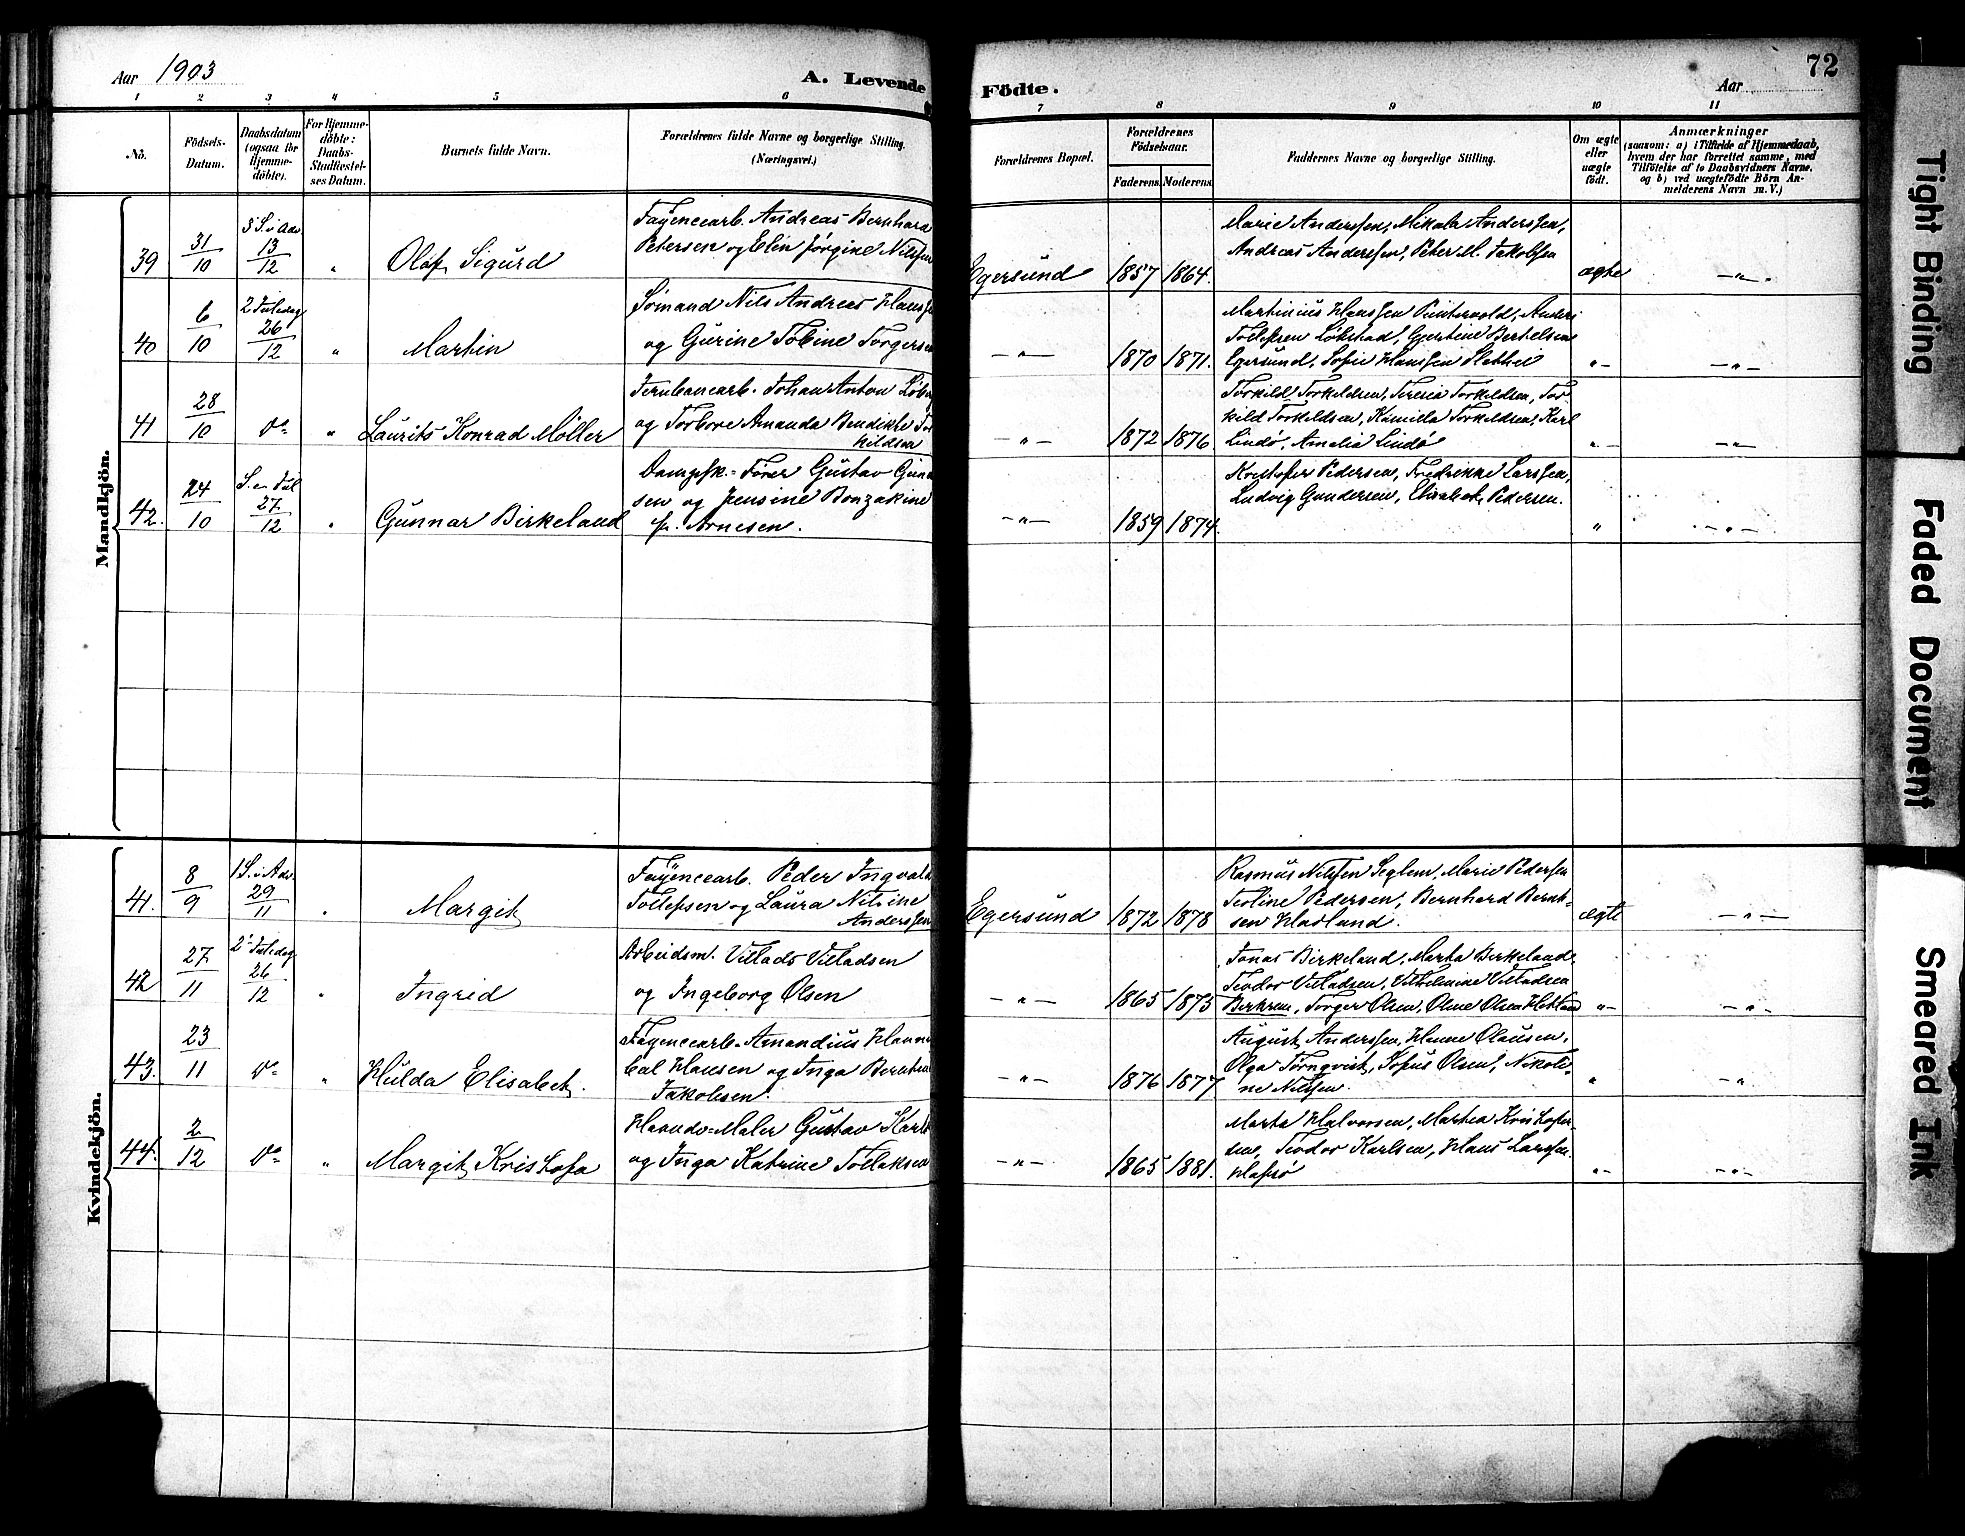 Aar 1903
A. Levende
Födte.
Aar
72
1 2 3 4 5 6 7 8 9 10 11
No.
Födsels-Datum.
Daabsdatum (ogsaa for Hjemme-döbte).
For Hjemme-döbte: Daabs-Stadfæstel-ses Datum.
Barnets fulde Navn.
Forældrenes fulde Navne og borgerlige Stilling.
(Næringsvei.)
Forældrenes Bopæl.
Forældrenes Födselsaar.
Faderens. Moderens.
Faddernes Navne og borgerlige Stilling.
Om ægte eller uægte födt.
Anmærkninger
(saasom: a) i Tilfælde af Hjemmedaab,
hvem der har forrettet samme, med
Tilföielse af to Daabsvidners Navne,
og b) ved uægtefödte Börn An-
melderens Navn m. V.)
Mandkjön.
39 31/10 3 S. i Adv 13/12 " Olaf Sigurd
Fayencearb. Andreas Bernhard
Petersen og Elin Jørgine Nilssen
Egersund 1857 1864.
Marie Anderssen, Mikala Anderssen,
Andreas Anderssen, Peter M. Jakobsen
ægte —"—
40 6/10 2 Juledag 26/12 " Martin
Sømand Nils Andreas Hanssen
og Gurine Tobine Torgersen
—"— 1870 1871.
Martinius Hanssen Puntervold, Anders
Tollefsen Løkstad, Gjertine Bertelsen
Egersund, Sofie Hanssen Slettet
"— —"—
41 28/10 do " Laurits Konrad Møller
Jernbanearb. Johan Anton
og Torbore Amanda Bendikte Tor
kildsen
—"— 1872 1876
Torkild Torkildsen, Teresia Torkildsen, Tor
kild Torkildsen, Kamilla Torkildsen, Karl
Lindø, Amalia Lindø
"— —"—
42. 24/10 S. e. Jul 27/12 " Gunnar Birkeland
Dampsk.-Fører Gustav Gunn
sen og Jensine Bonzakine
f. Arnesen.
—"— 1859 1874.
Kristofer Pedersen, Fredrikke Larssen,
Ludvig Gundersen, Elisabet Pedersen.
" —"—
Kvindekjön.
41. 8/9 1 S. i Adv 29/11 " Margit
Fayencearb. Peder Ingvald
Tollefsen og Laura Nilsine
Anderssen
Egersund 1872 1878
Rasmus Nilssen Seglem, Marie Pedersen
Teoline Pedersen, Bernhard Bernt-
sen Hadland.
ægte —"—
42 27/11 2 Juledag 26/12 " Ingrid
Arbeidsm. Villads Villadsen
og Ingeborg Olsen
—"— 1865 1875
Jonas Birkeland, Marta Birkeland,
Teodor Villadsen, Vilhelmine Villadsen
Birkrem, Torger Olsen, Oline Olsen Hetland
"— —"—
43. 23/11 do " Hulda Elisabet.
Fayencearb. Amandius Hanni
bal Hansen og Inga Berntine
Jakobsen.
—"— 1876 1877
August Anderssen, Hanne Olausen,
Olga Tørnqvist, Sofus Olsen, Nikoli-
ne Nilssen.
" —"
44. 2/12 do " Margit Kristofa
Haands-Maler Gustav Karls
og Inga Katrine Tollaksen
—"— 1865 1881.
Marta Halvorsen, Martea Kristofer
sen, Teodor Karlsen, Hans Larssen
Hafsø
"— —"—
Tight Binding
Faded Document
Smeared Ink